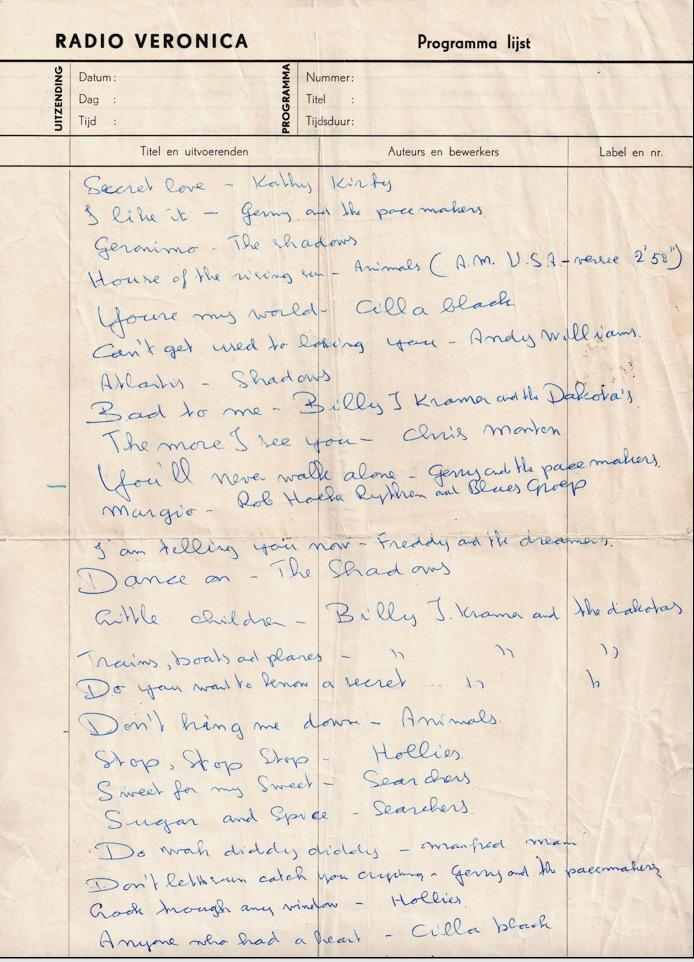 RADIO VERONICA Programma lijst
UITZENDING Datum: PROGRAMMA Nummer:
Dag : Titel :
Tijd : Tijdsduur:
Titel en uitvoerenden Auteurs en bewerkers Label en nr.
Secret love - Kathy Kirby
I like it - Gerry and the pacemakers
Geronimo - The shadows
House of the rising sun - Animals (A.M. U.S.A - versie 2'58")
Youre my world - Cilla black
Can't get used to losing you - Andy Williams.
Atlantis - Shadows
Bad to me - Billy J. Kramer and the Dakota's
The more I see you - Chris Monten
You'll never walk alone - Gerry and the pacemakers.
Margio - Rob Hoeke Rythem and Blues Groep
I am telling you now - Freddy and the dreamers.
Dance on - The Shadows
Little children - Billy J. Kramer and the dakotas
Trains, boats ad planes - " " "
Do you want to know a secret " "
Don't bring me down - Animals.
Stop, Stop Stop - Hollies
Sweet for my Sweet - Searchers
Sugar and Spice - Searchers.
Do wah diddy diddy - manfred man
Don't let the sun catch you crying - Gerry and the pacemakers
Look trough any window - Hollies
Anyone who had a heart - Cilla black